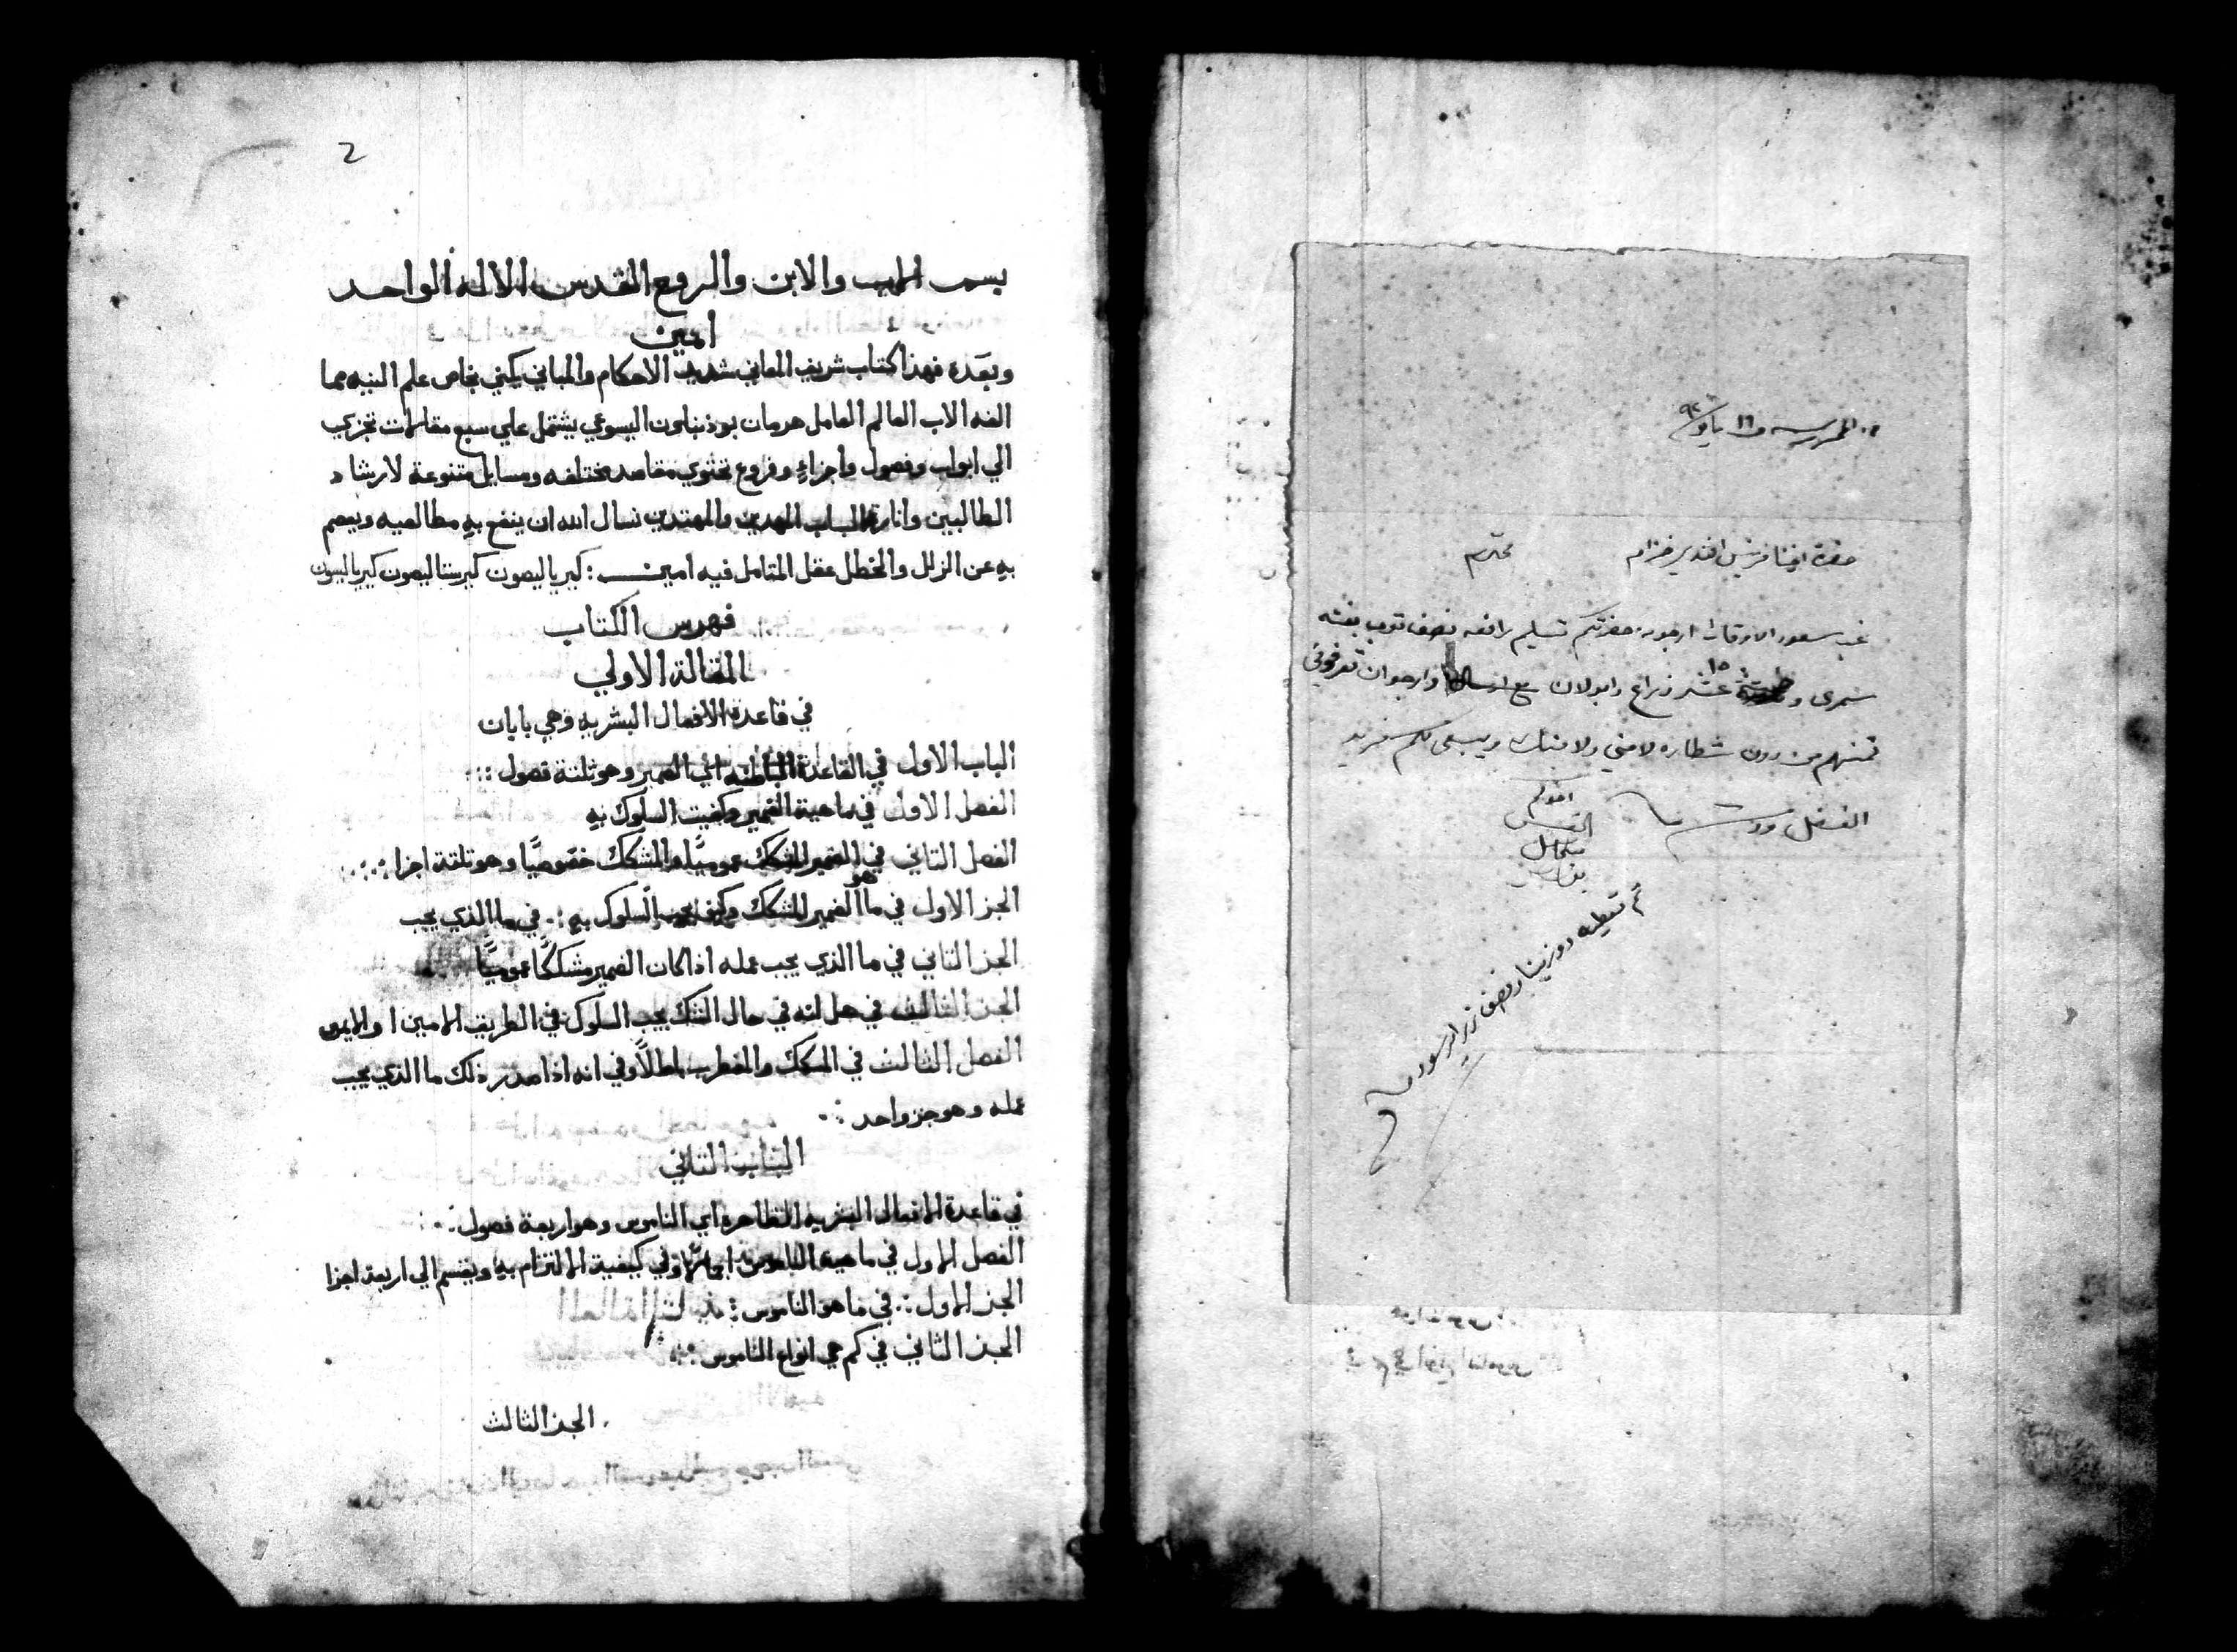 من المدرسه في ١٦ مايو ٩٢
حضرة اخينا فرنسيس افندي خزام محترم
غب سعود الاوقات ارجو من حضرتكم تسليم رافعه نصف توب بفته
سمرى و ١٥ عشر ذراع دابولان مع وارجو ان تعرفوني
ثمنهم من دون شطاره لا مني ولا منك ويبقى لكم مزيد
الفضل ودمتم
اخوكم
القس
ثم تعطيه دوزينا ونصف زراير سود
2
بسم الاب والابن والروح القدس الاله الواحد
امين
وبعده فهذا كتاب شريف المعاني شديد الاحكام والمباني يكني بخاص علم الذيه مما
الفه الاب العالم العامل هرمان بوزنباون اليسوعي يشتمل علي سبع مقالات تجزي
الي ابواب وفصول واجزاء وفروع تحتوي مقاصد مختلفه ومسايل متنوعة لارشاد
الطالبين وانارة الباب المهدين والمهتدين نسال الله ان ينفع به مطالعيه ويعصم
به عن الزلل والخطل عقل المتامل فيه امين : كيرياليصون كيرستاليصون كيرياليسون
فهرس الكتاب
المقالة الاولي
في قاعدة الافعال البشريه وهي بابان
الباب الاول في القاعدة الباطنه اي الضمير وهو ثلثة فصول
الفصل الاول في ماهية الضمير وكيفيت السلوك به
الفصل الثاني في الضمير المشكك عموميًا والمشكك خصوصيًا وهو ثلثة اجزا
الجز الاول في ما هو الضمير المشكك وكيف يجب السلوك به . في ما الذي يجب
الجز الثاني في ما الذي يجب عمله اذا كان الضمير مشككًا عموميًا
الجز الثالث في هل انه في حال الشك يجب السلوك في الطريق الامين او الايمن
الفصل الثالث في المشكك والمضطرب باطلًا وفي انه اذا صدر ذلك ما الذي يجب
عمله وهو جز واحد
الباب الثاني
في قاعدة الافعال البشريه الظاهرة اي الناموس وهو اربعة فصول
الفصل الاول في ماهية الناموس وفي كيفية الالتزام به ويقسم الي اربعة اجزا
الجز الاول : في ما هو الناموس
الجز الثاني في كم هي انواع الناموس
الجز الثالث